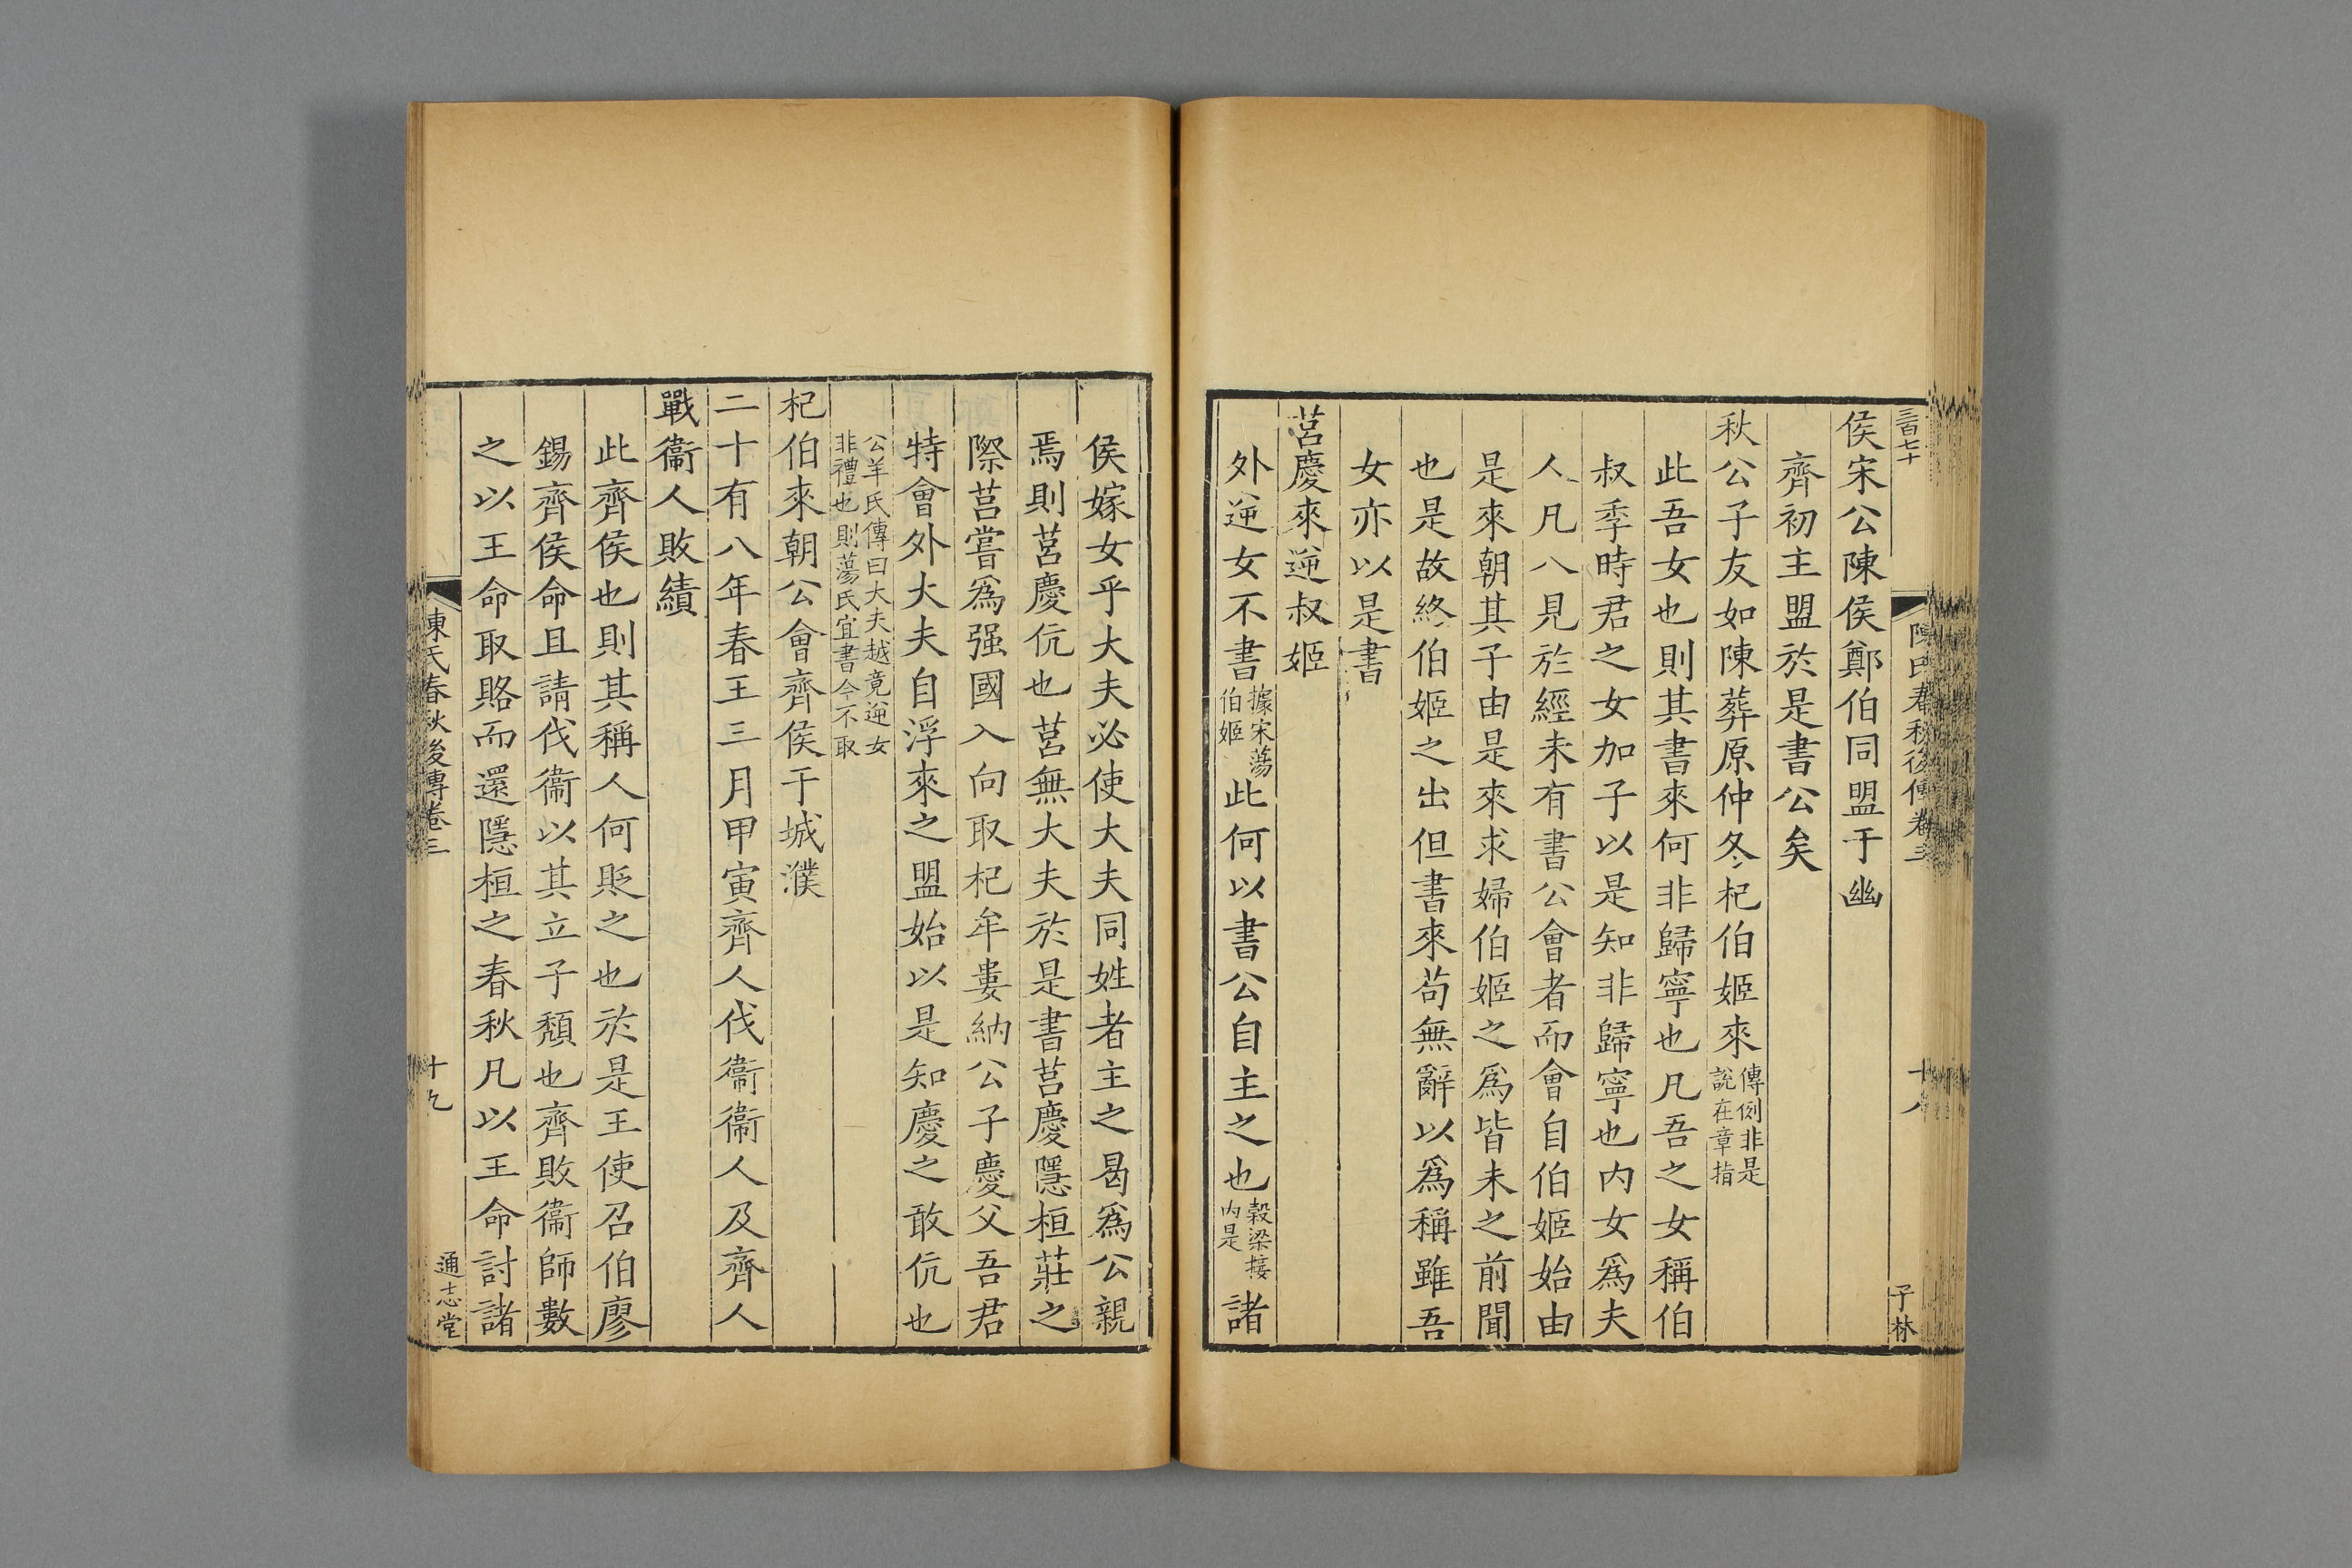 三百七十
陳氏春秋後傳卷三
十八
子林
侯宋公陳侯鄭伯同盟于幽
齊初主盟於是書公矣
秋公子友如陳葬原仲冬杞伯姬來傳例非是
說在章指
此吾女也則其書來何非歸寧也凡吾之女稱伯
叔季時君之女加子以是知非歸寧也内女爲夫
人凡八見於經未有書公會者而會自伯姬始由
是來朝其子由是來求婦伯姬之爲皆未之前聞
也是故終伯姬之出但書來茍無辭以爲稱雖吾
女亦以是書
莒慶來逆叔姬
外逆女不書據宋蕩
伯姬此何以書公自主之也穀梁接
内是諸
侯嫁女乎大夫必使大夫同姓者主之曷爲公親
焉則莒慶伉也莒無大夫於是書莒慶隱桓莊之
際莒嘗爲强國入向取杞牟婁納公子慶父吾君
特會外大夫自浮來之盟始以是知慶之敢伉也
公羊氏傳曰大夫越竟逆女
非禮也則蕩氏宜書今不取
杞伯來朝公會齊侯于城濮
二十有八年春王三月甲寅齊人伐衞衞人及齊人
戰衞人敗績
此齊侯也則其稱人何貶之也於是王使召伯廖
錫齊侯命且請伐衞以其立子頹也齊敗衞師數
之以王命取賂而還隱桓之春秋凡以王命討諸
陳氏春秋後傳卷三
十九
通志堂